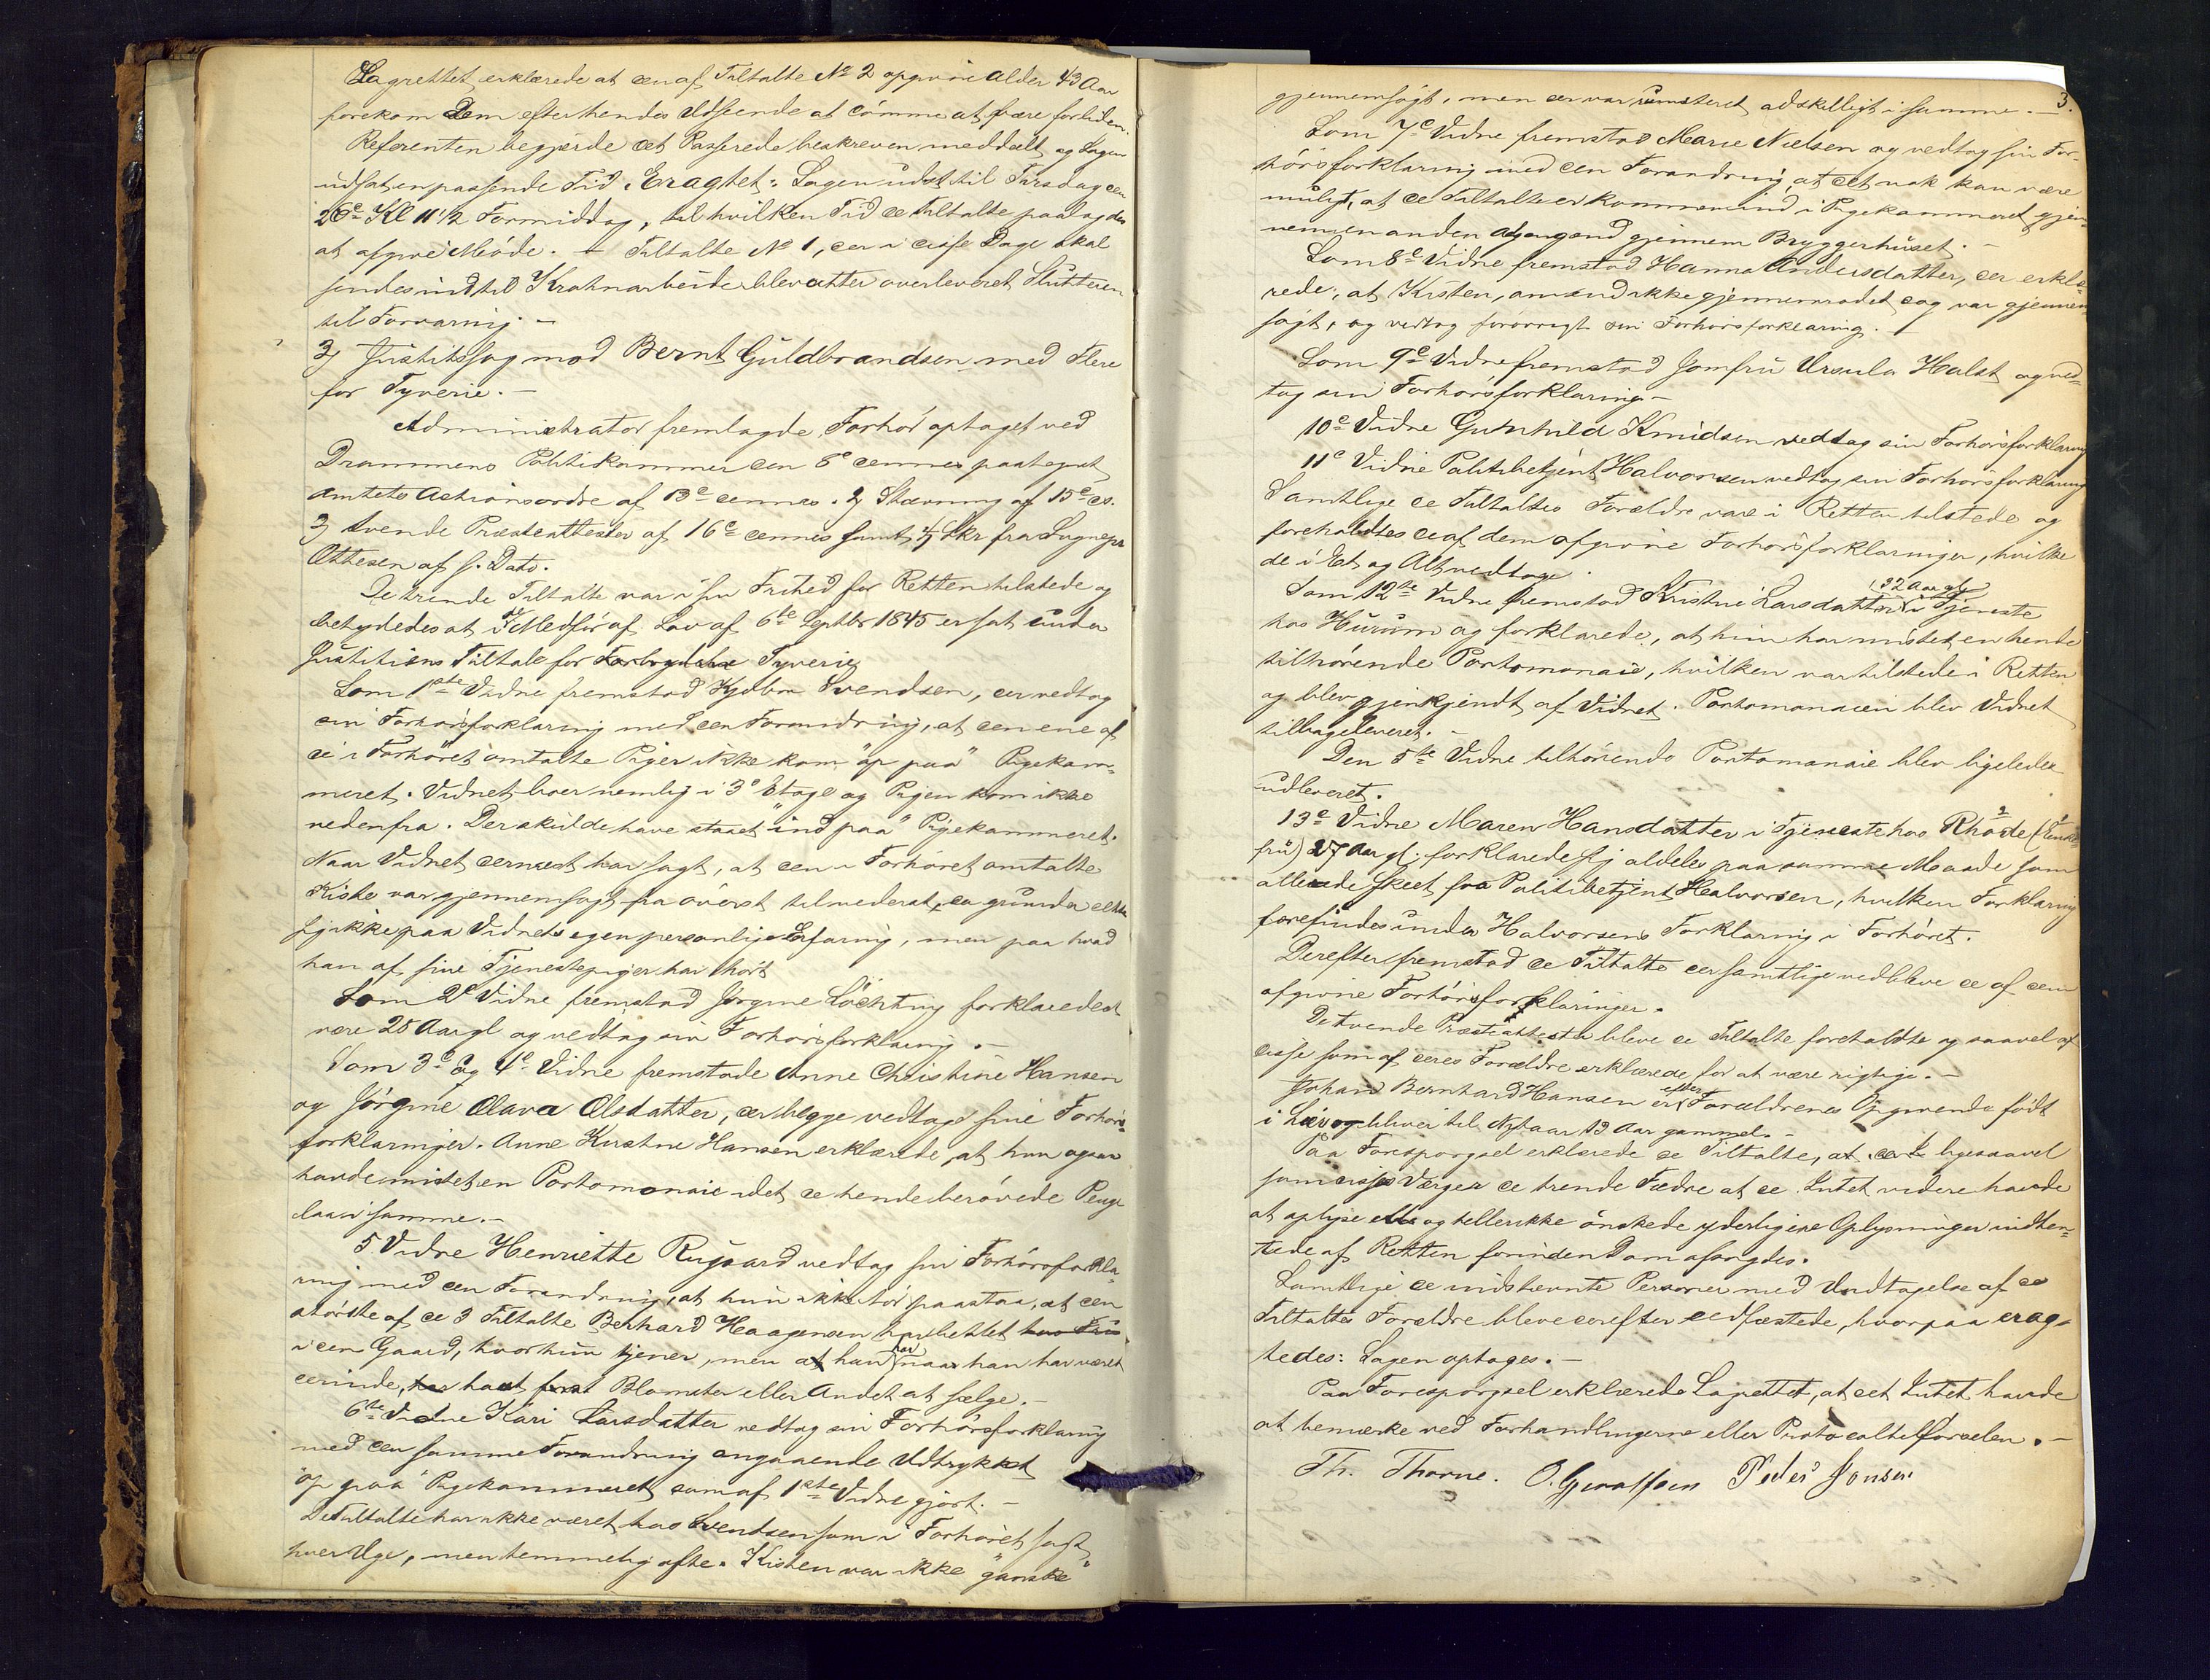 Lagrettet erklærede at den af Tiltalte No 2 opgivne Alder 43 Aar
forekom Dem efter hendes Udseende at dømme at være forliden.
Referenten begjærde det Passerede beskreven meddelt og Sagen
udsat en passende Tid. Eragtet: Sagen udst til Tirsdag den
26de Kl 11 1/2 Formiddag, til hvilken Tid de Tiltalte paalagdes
at afgive Møde. – Tiltalte No 1, der i disse Dage skal
sendes ind til Krohnarbeide blev atter overleveret Slutteren
til Forvaring. –
3, Justitssag mod Bernt Guldbrandsen med Flere
for Tyverie. –
Administrator fremlagde Forhør optaget ved
Drammens Politikammer den 8de dennes paategnet
Amtets Actionsordre af 13de dennes. 2, Stævning af 15de ds.
3, tvende Præsteattester af 16de dennes samt 4, Skr fra Sognepr
Ottesen af s. Dato.
De trende Tiltalte var i sin Frihed for Retten tilstede og
betydedes at de i Medfør af Lov af 6te Septbr 1845 er sat under
Justitiens Tiltale for Tyverie
Som 1ste Vidne fremstod Svendsen, der vedtog
sin Forhørsforklaring med den Forandring, at den ene af
de i Forhøret omtalte Piger ikke kom "op paa" Pigekam-
meret. Vidnet boer nemlig i 3de Etage og Pigen kom ikke
nedenfra. Der skulde have staaet "ind paa" Pigekammeret.
Naar Vidnet dernæst har sagt, at den i Forhøret omtalte
Kiste var gjennemsøgt fra øverst til nederst, da grunder dette
sig ikke paa Vidnets egen personlige Erfaring, men paa hvad
han af sine Tjenestepiger har hørt
Som 2det Vidne fremstod Jørgine Løchting forklarede at
være 25 Aar gl og vedtog sin Forhørsforklaring. –
Som 3de og 4de Vidne fremstode Anne Christine Hansen
og Jørgine Olava Olsdatter, der begge vedtoge sine Forhørs-
forklaringer. Anne Kristine Hansen erklærede, at hun ogsaa
havde mistet en Portomonaie idet de hende berøvede Penge
laae i samme. –
5 Vidne Henriette Rugaard vedtog sin Forhørsforkla-
ring med den Forandring, at hun ikke tør paastaa, at den
største af de 3 Tiltalte Berhard Haagensen har bettlet hos Fru
i den Gaard, hvor hun tjener, men at han har naar han har været
derinde, har havt Blomster eller Andet at sælge. –
6te Vidne Kari Larsdatter vedtog sin Forhørsforklaring
med den samme Forandring angaaende Udtrykket
"op paa" Pigekammeret som af 1ste Vidne gjort. –
De Tiltalte har ikke været hos Svendsen som i Forhøret sagt
hver Uge, men temmelig ofte. Kisten var ikke "ganske"
3.
gjennemsøgt, men der var rumsteret adskilligt i samme. –
Som 7de Vidne fremstod Marie Nielsen og vedtog sin For-
hørsforklaring med den Forandring, at det nok kan være
muligt, at de Tiltalte er kommen ind i Pigekammeret gjen-
nem en anden Adgang end gjennem Bryggerhuset. –
Som 8de Vidne fremstod Hanna Andersdatter, der erklæ-
rede, at Kisten, om end ikke gjennemrodet dog var gjennem
søgt, og vedtog forøvrigt sin Forhørsforklaring. –
Som 9de Vidne fremstod Jomfru Ursula Holst og ved-
tog sin Forhørsforklaring –
10de Vidne Gunhild Knudsen vedtog sin Forhørsforklaring
11de Vidne Politibetjent Halvorsen vedtog sin Forhørsforklaring
Samtlige de Tiltaltes Forældre vare i Retten tilstede og
foreholdtes de af dem afgivne Forhørsforklaringer, hvilke
de i Et og Alt vedtoge.
(22 Aar gl)
Som 12te Vidne fremstod Kristine Larsdatter i Tjeneste
hos Hurum og forklarede, at hun har mistet en hende
tilhørende Portomonaie, hvilken var tilstede i Retten
og blev gjenkjendt af Vidnet. Portomonaien blev Vidnet
tilbageleveret. –
Den 5te Vidne tilhørende Portomonaie blev ligeledes
udleveret.
13de Vidne Maren Hansdatter i Tjeneste hos Rhode (Enke-
fru) 27 Aar gl. forklarede sig aldeles paa samme Maade som
allerede skeet for Politibetjent Halvorsen, hvilken Forklaring
forefindes under Halvorsens Forklaring i Forhøret.
Derefter fremstod de Tiltalte der samtlige vedbleve de af dem
afgivne Forhørsforklaringer.
De tvende Præsteattester bleve de Tiltalte foreholdte og saavel af
disse som af deres Forældre erklærede for at være rigtige. –
Johan Bernhard Hansen er efter Forældrenes Opgivende født
i Lier og bliver til Nytaar 13 Aar gammel. –
Paa Forespørgsel erklærede de Tiltalte, at ligesaavel
som disses Værger de trende Fædre at de Intet videre havde
at oplyse og heller ikke ønskede yderligere Oplysninger indhen-
tede af Retten forinden Dom afsagdes.
Samtlige de indstevnte Personer med Undtagelse af de
Tiltaltes Forældre bleve derefter eedfæstede, hvorpaa erag-
tedes: Sagen optages. –
Paa Forespørgsel erklærede Lagrettet, at det Intet havde
at bemærke ved Forhandlingerne eller Protocoltilførselen. –
Th. Thorne. O. Peder Jonsen